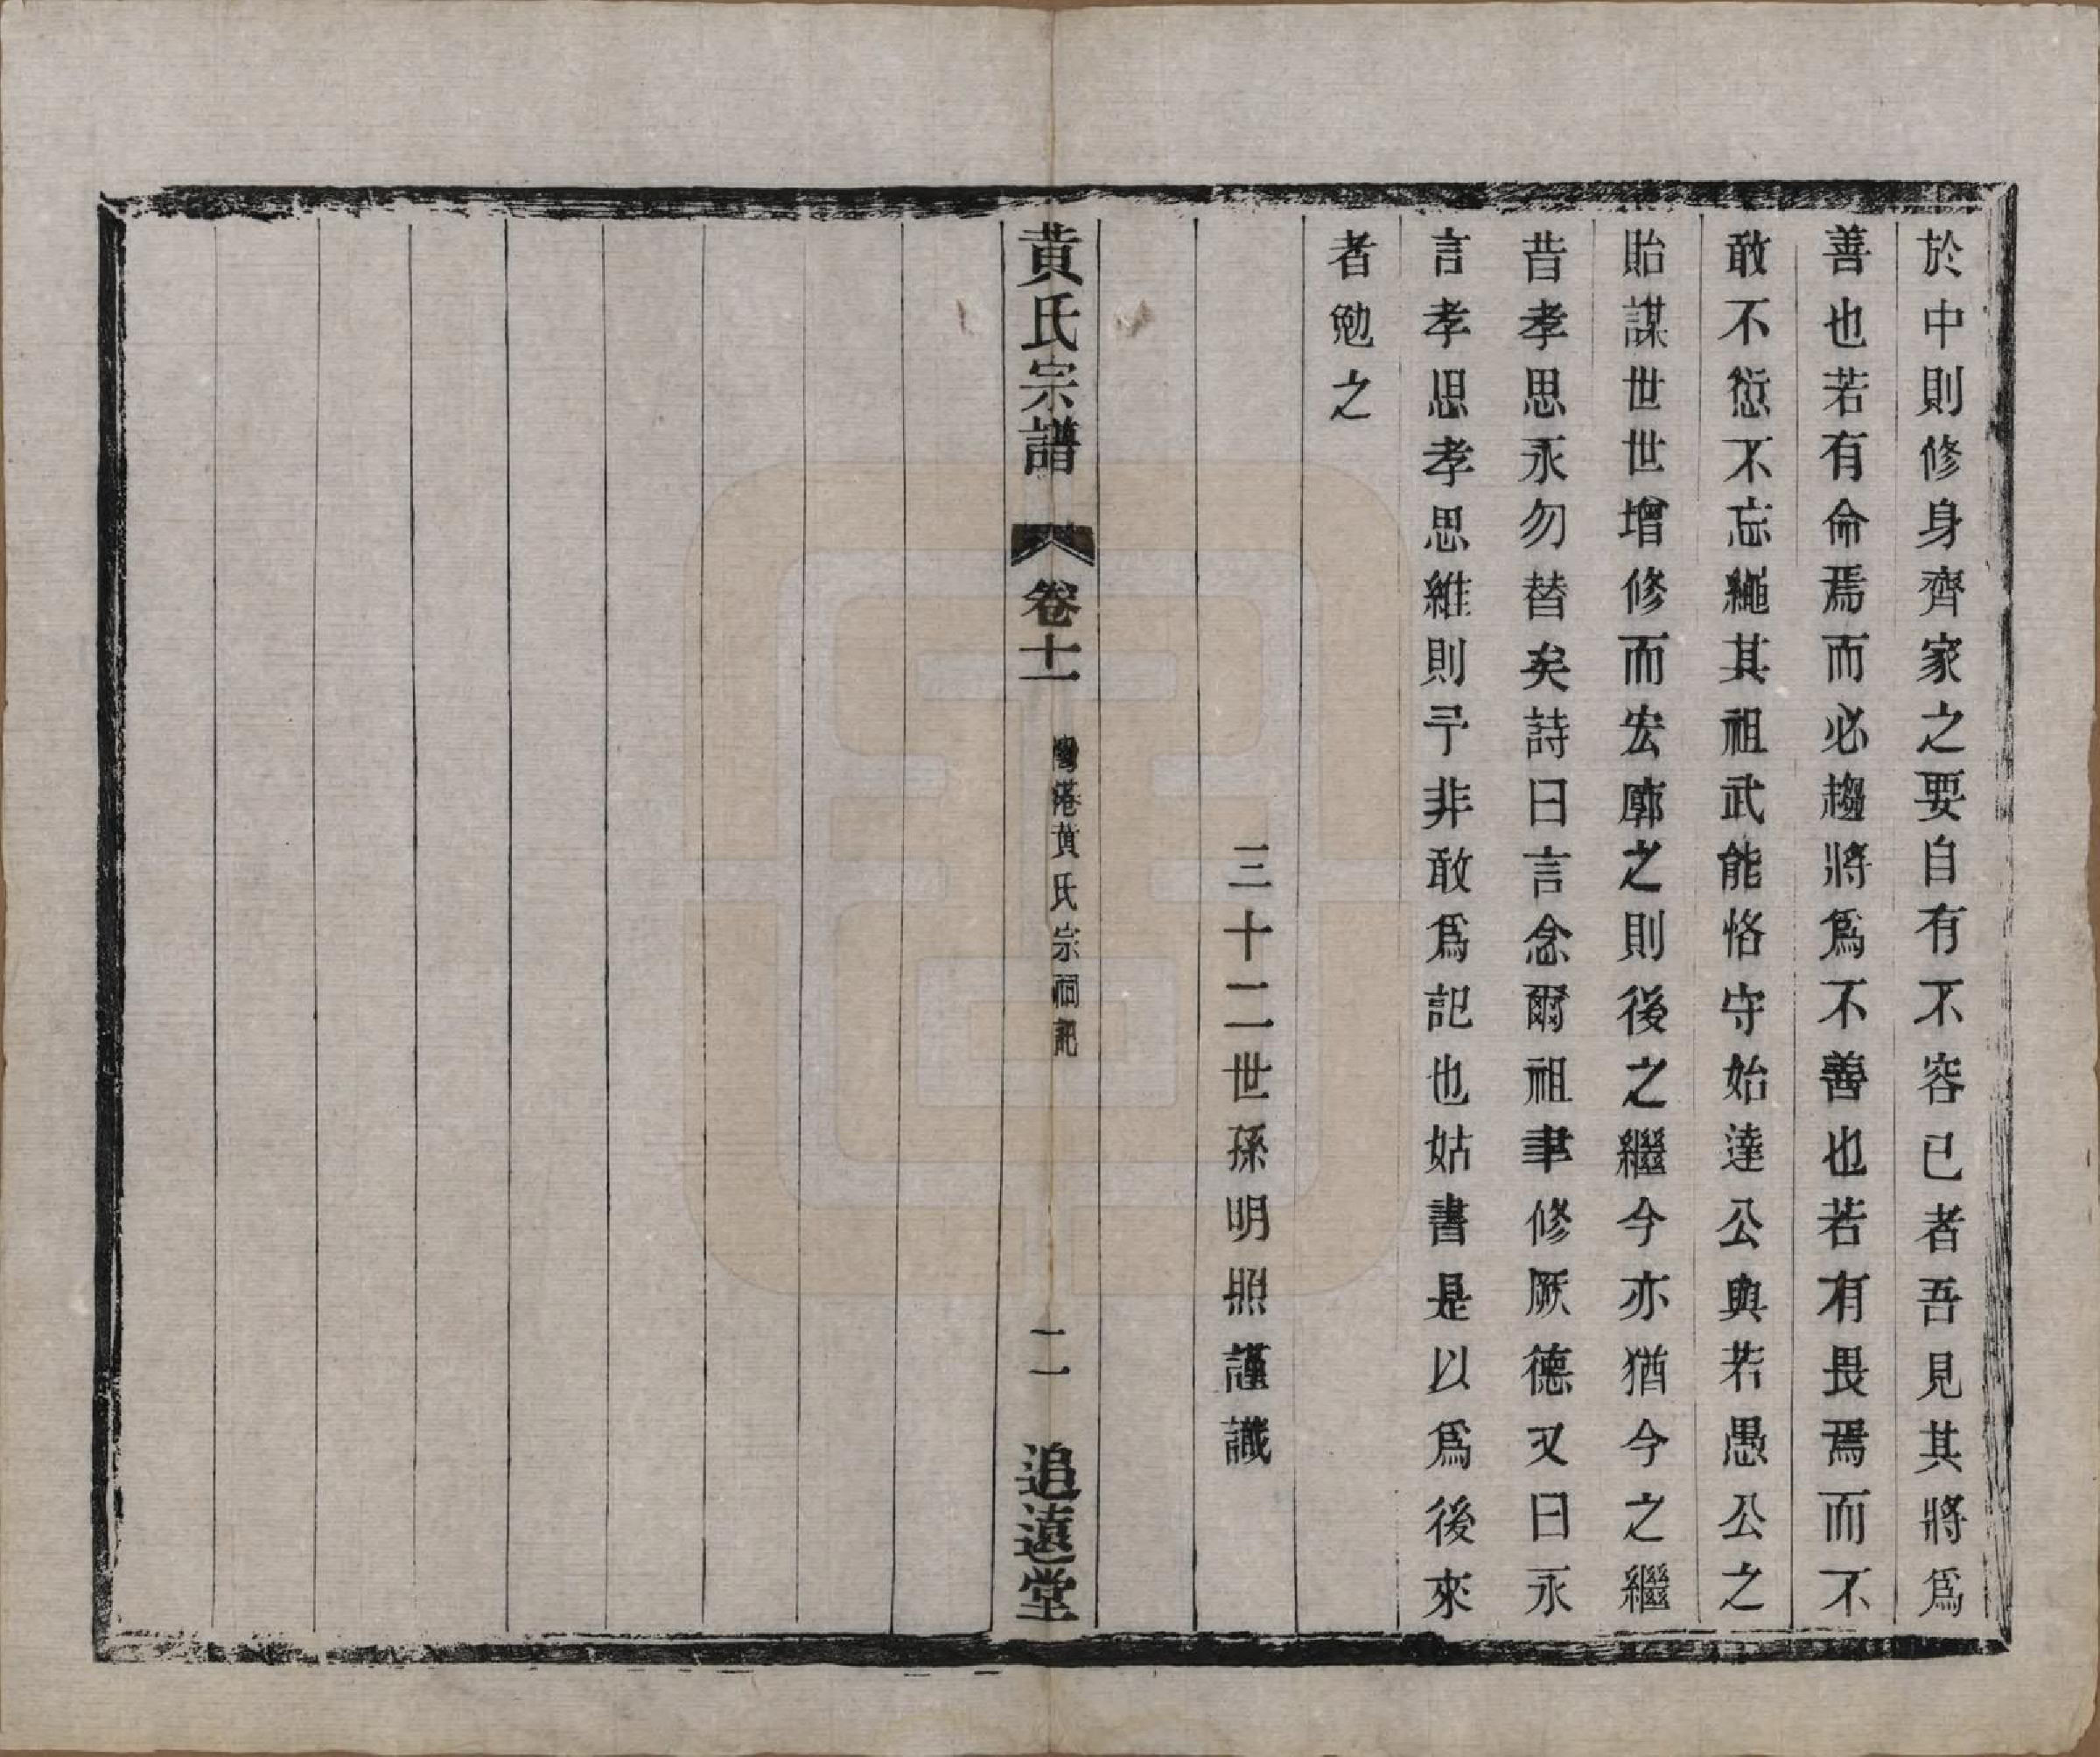 於中則修身齊家之要自有不容已者吾見其將爲
善也若有命焉而必趨將爲不善也若有畏焉而不
敢不愆不忘繩其祖武能恪守始達公與若愚公之
貽謀世世增修而宏廓之則後之繼今亦猶今之繼
昔孝思永勿替矣詩曰言念爾祖聿修厥德又曰永
言孝思孝思維則予非敢爲記也姑書是以爲後來
者勉之
三十二世孫明照謹識
黄氏宗譜 卷十一 灣港黄氏宗祠記 二 追遠堂